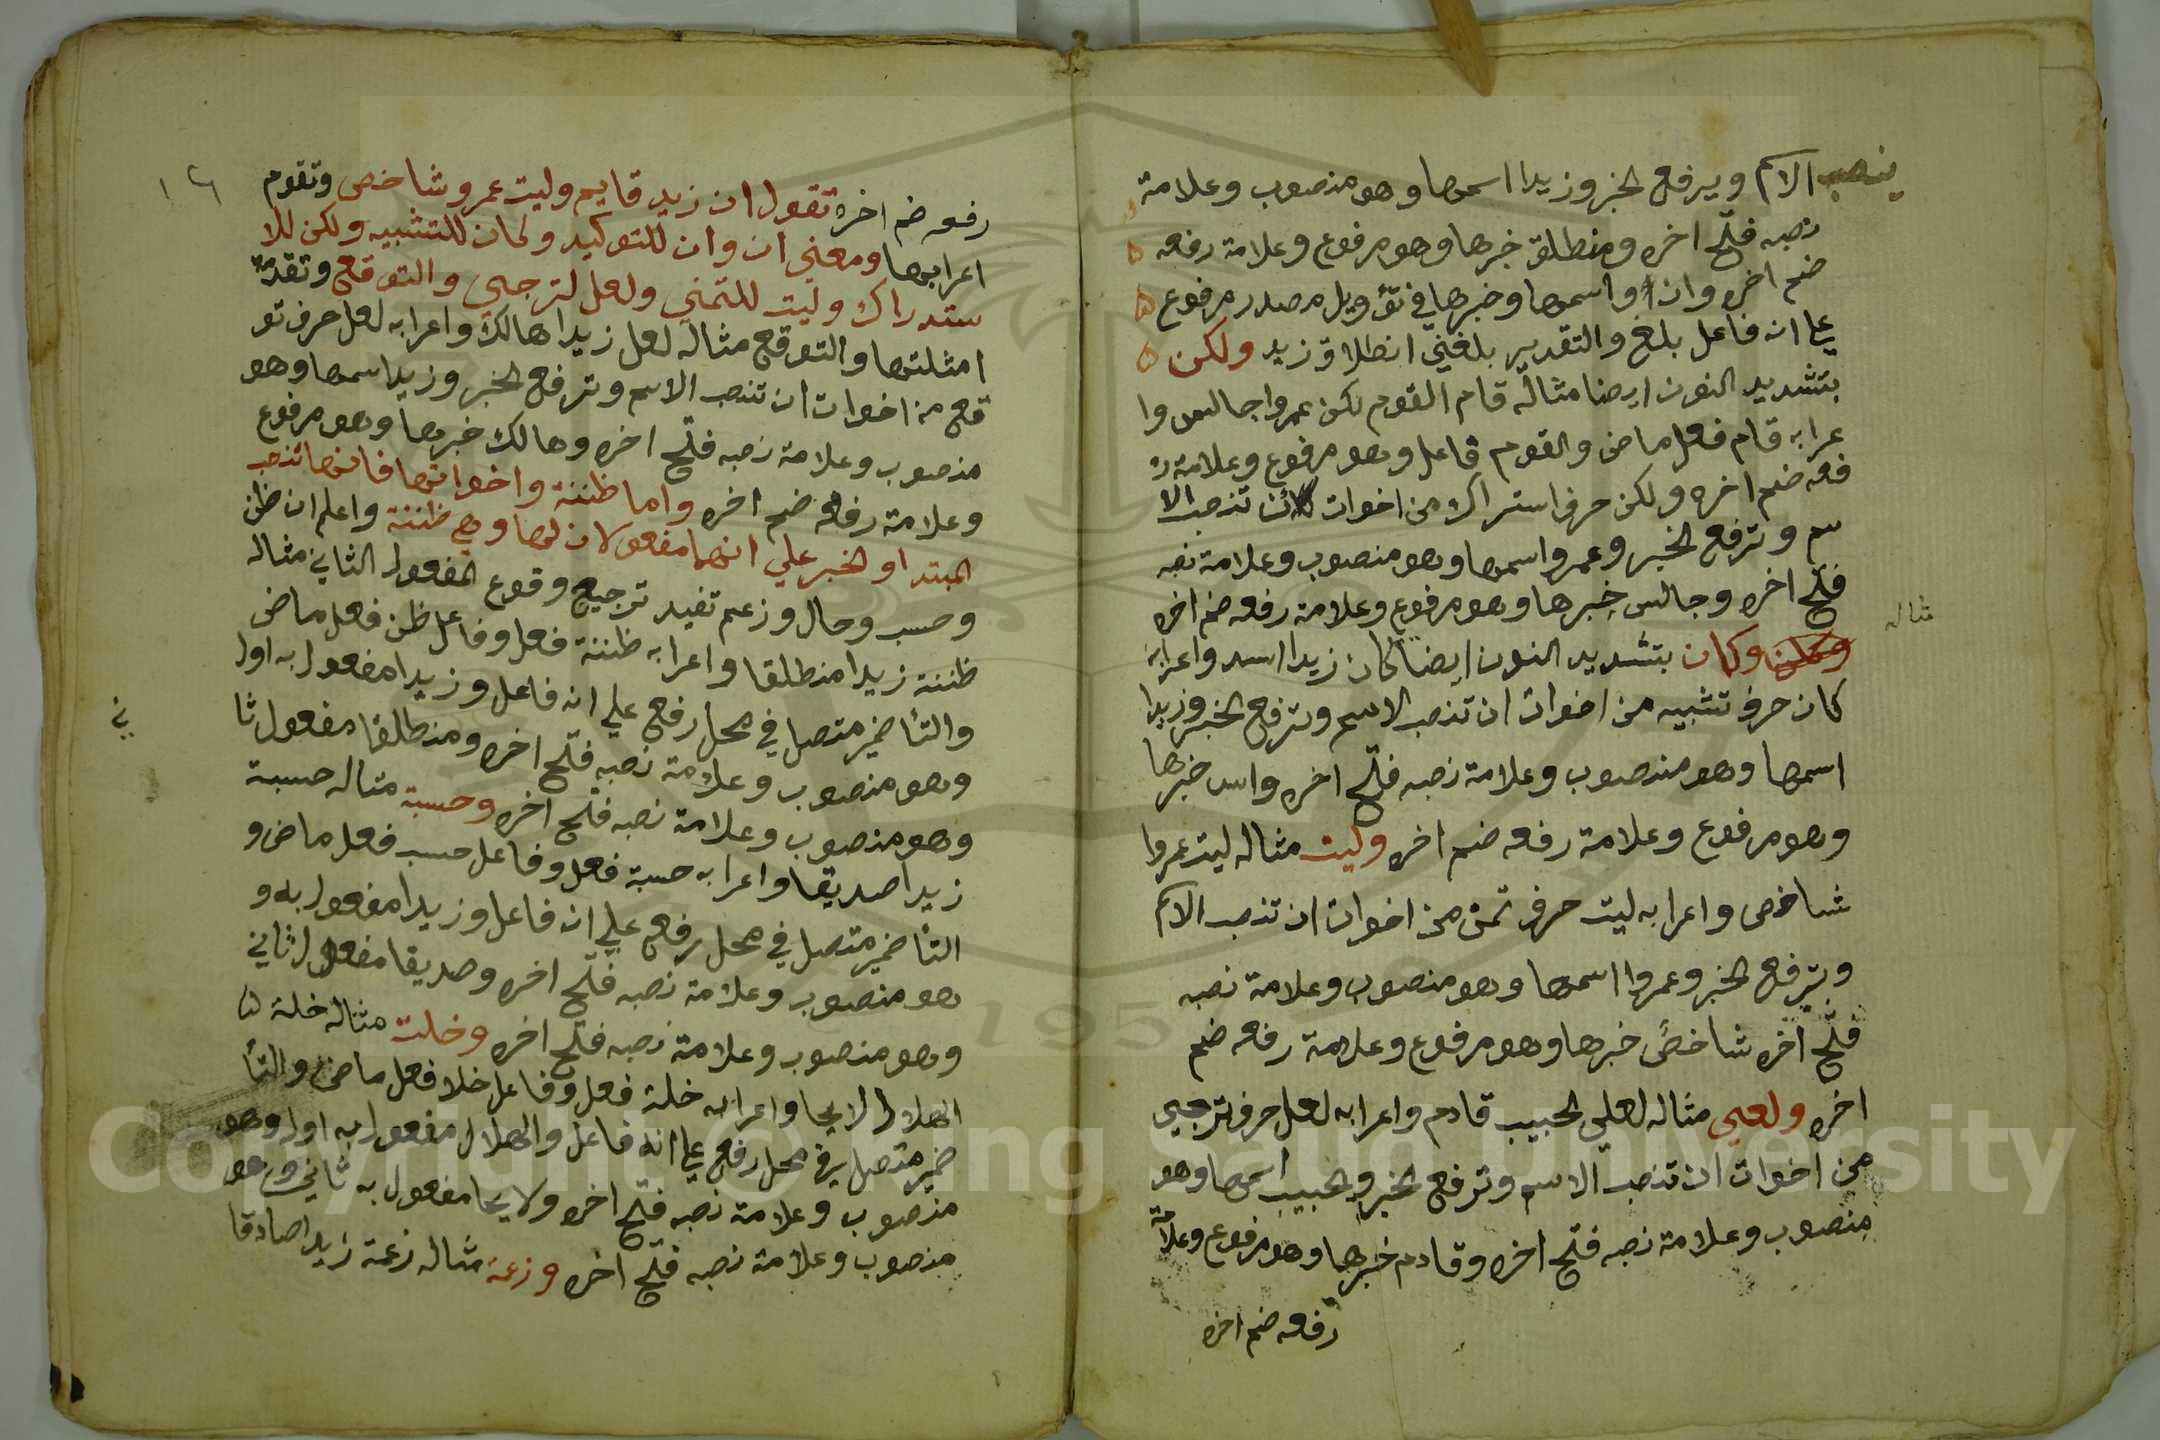 ينصب الاسم ويرفع الخبر وزيدا اسمها وهو منصوب وعلامة
نصبه فتح اخره ومنطلق خبرها وهو مرفوع وعلامة رفعه
ضم اخره وان واسمها وخبرها في تؤويل مصدر مرفوع
علي انه فاعل بلغ والتقدير بلغني انطلاق زيد ولكن
بتشديد النون ايضا مثاله قام القوم لكن عمروا جالس وا
عرابه قام فعل ماض والقوم فاعل وهو مرفوع وعلامة ر
فعه ضم اخره ولكن حرف استراك من اخوات ان تنصب الا
سم وترفع الخبر وعمروا اسمها وهو منصوب وعلامة نصبه
فتح اخره وجالس خبرها وهو مرفوع وعلامة رفعه ضم اخره
وكان بتشديد النون ايضا كان زيدا اسد واعرابه
مثاله
كان حرف تشبيه من اخوات ان تنصب الاسم وترفع الخبر وزيدا
اسمها وهو منصوب وعلامة نصبه فتح اخره واسد خبرها
وهو مرفوع وعلامة رفعه ضم اخره وليت مثاله ليت عمروا
شاخص واعرابه ليت حرف تمن من اخوات ان تنصب الاسم
وترفع الخبر وعمروا اسمها وهو منصوب وعلامة نصبه
فتح اخره شاخص خبرها وهو مرفوع وعلامة رفعه ضم
اخره ولعل مثاله لعل الحبيب قادم واعرابه لعل حرف ترجي
من اخوات ان تنصب الاسم وترفع الخبر والحبيب اسمها وهو
منصوب وعلامة نصبه فتح اخره وقادم خبرها وهو مرفوع وعلامة
رفعه ضم اخره
١٦
رفعه ضم اخره تقول ان زيد قايم وليت عمرو شاخص وتقوم
اعرابها ومعني ان وان للتوكيد ولكان للتشبيه ولكن للا
ستدراك وليت للتمني ولعل لترجي والتوقع وتقدمة
امثلتها والتوقع مثاله لعل زيدا هالك واعرابه لعل حرف تو
قع من اخوات ان تنصب الاسم وترفع الخبر وزيدا اسمها وهو
منصوب وعلامة نصبه فتح اخره وهالك خبرها وهو مرفوع
وعلامة رفعه ضم اخره واما ظننة واخواتها فانها تنصب
المبتدا والخبر علي انهما مفعولان لها وهي ظننة واعلم ان ظن
وحسب وخال وزعم تفيد ترجيح وقوع المفعول الثاني مثاله
ظننة زيدا منطلقا واعرابه ظننة فعل وفاعل ظن فعل ماض
والتأ ضمير متصل في محل رفع علي انه فاعل وزيدا مفعول به اول
وهو منصوب وعلامة نصبه فتح اخره ومنطلقا مفعول ثا
ني
وهو منصوب وعلامة نصبه فتح اخره وحسبة مثاله حسبة
زيدا صديقا واعرابه حسبة فعل وفاعل حسب فعل ماض و
التأ ضمير متصل في محل رفع علي انه فاعل وزيدا مفعول به و
هو منصوب وعلامة نصبه فتح اخره وصديقا مفعول ثاني
وهو منصوب وعلامة نصبه فتح اخره وخلت مثاله خلة
الهلال لايحا واعرابه خلة فعل وفاعل خلا فعل ماض والتأ
ضمير متصل في محل رفع علي انه فاعل والهلال مفعول به اول وهو
منصوب وعلامة نصبه فتح اخره ولايحا مفعول به ثاني وهو
منصوب وعلامة نصبه فتح اخره وزعمة مثاله زعمة زيدا صادقا
Copyright © King Saud University
195